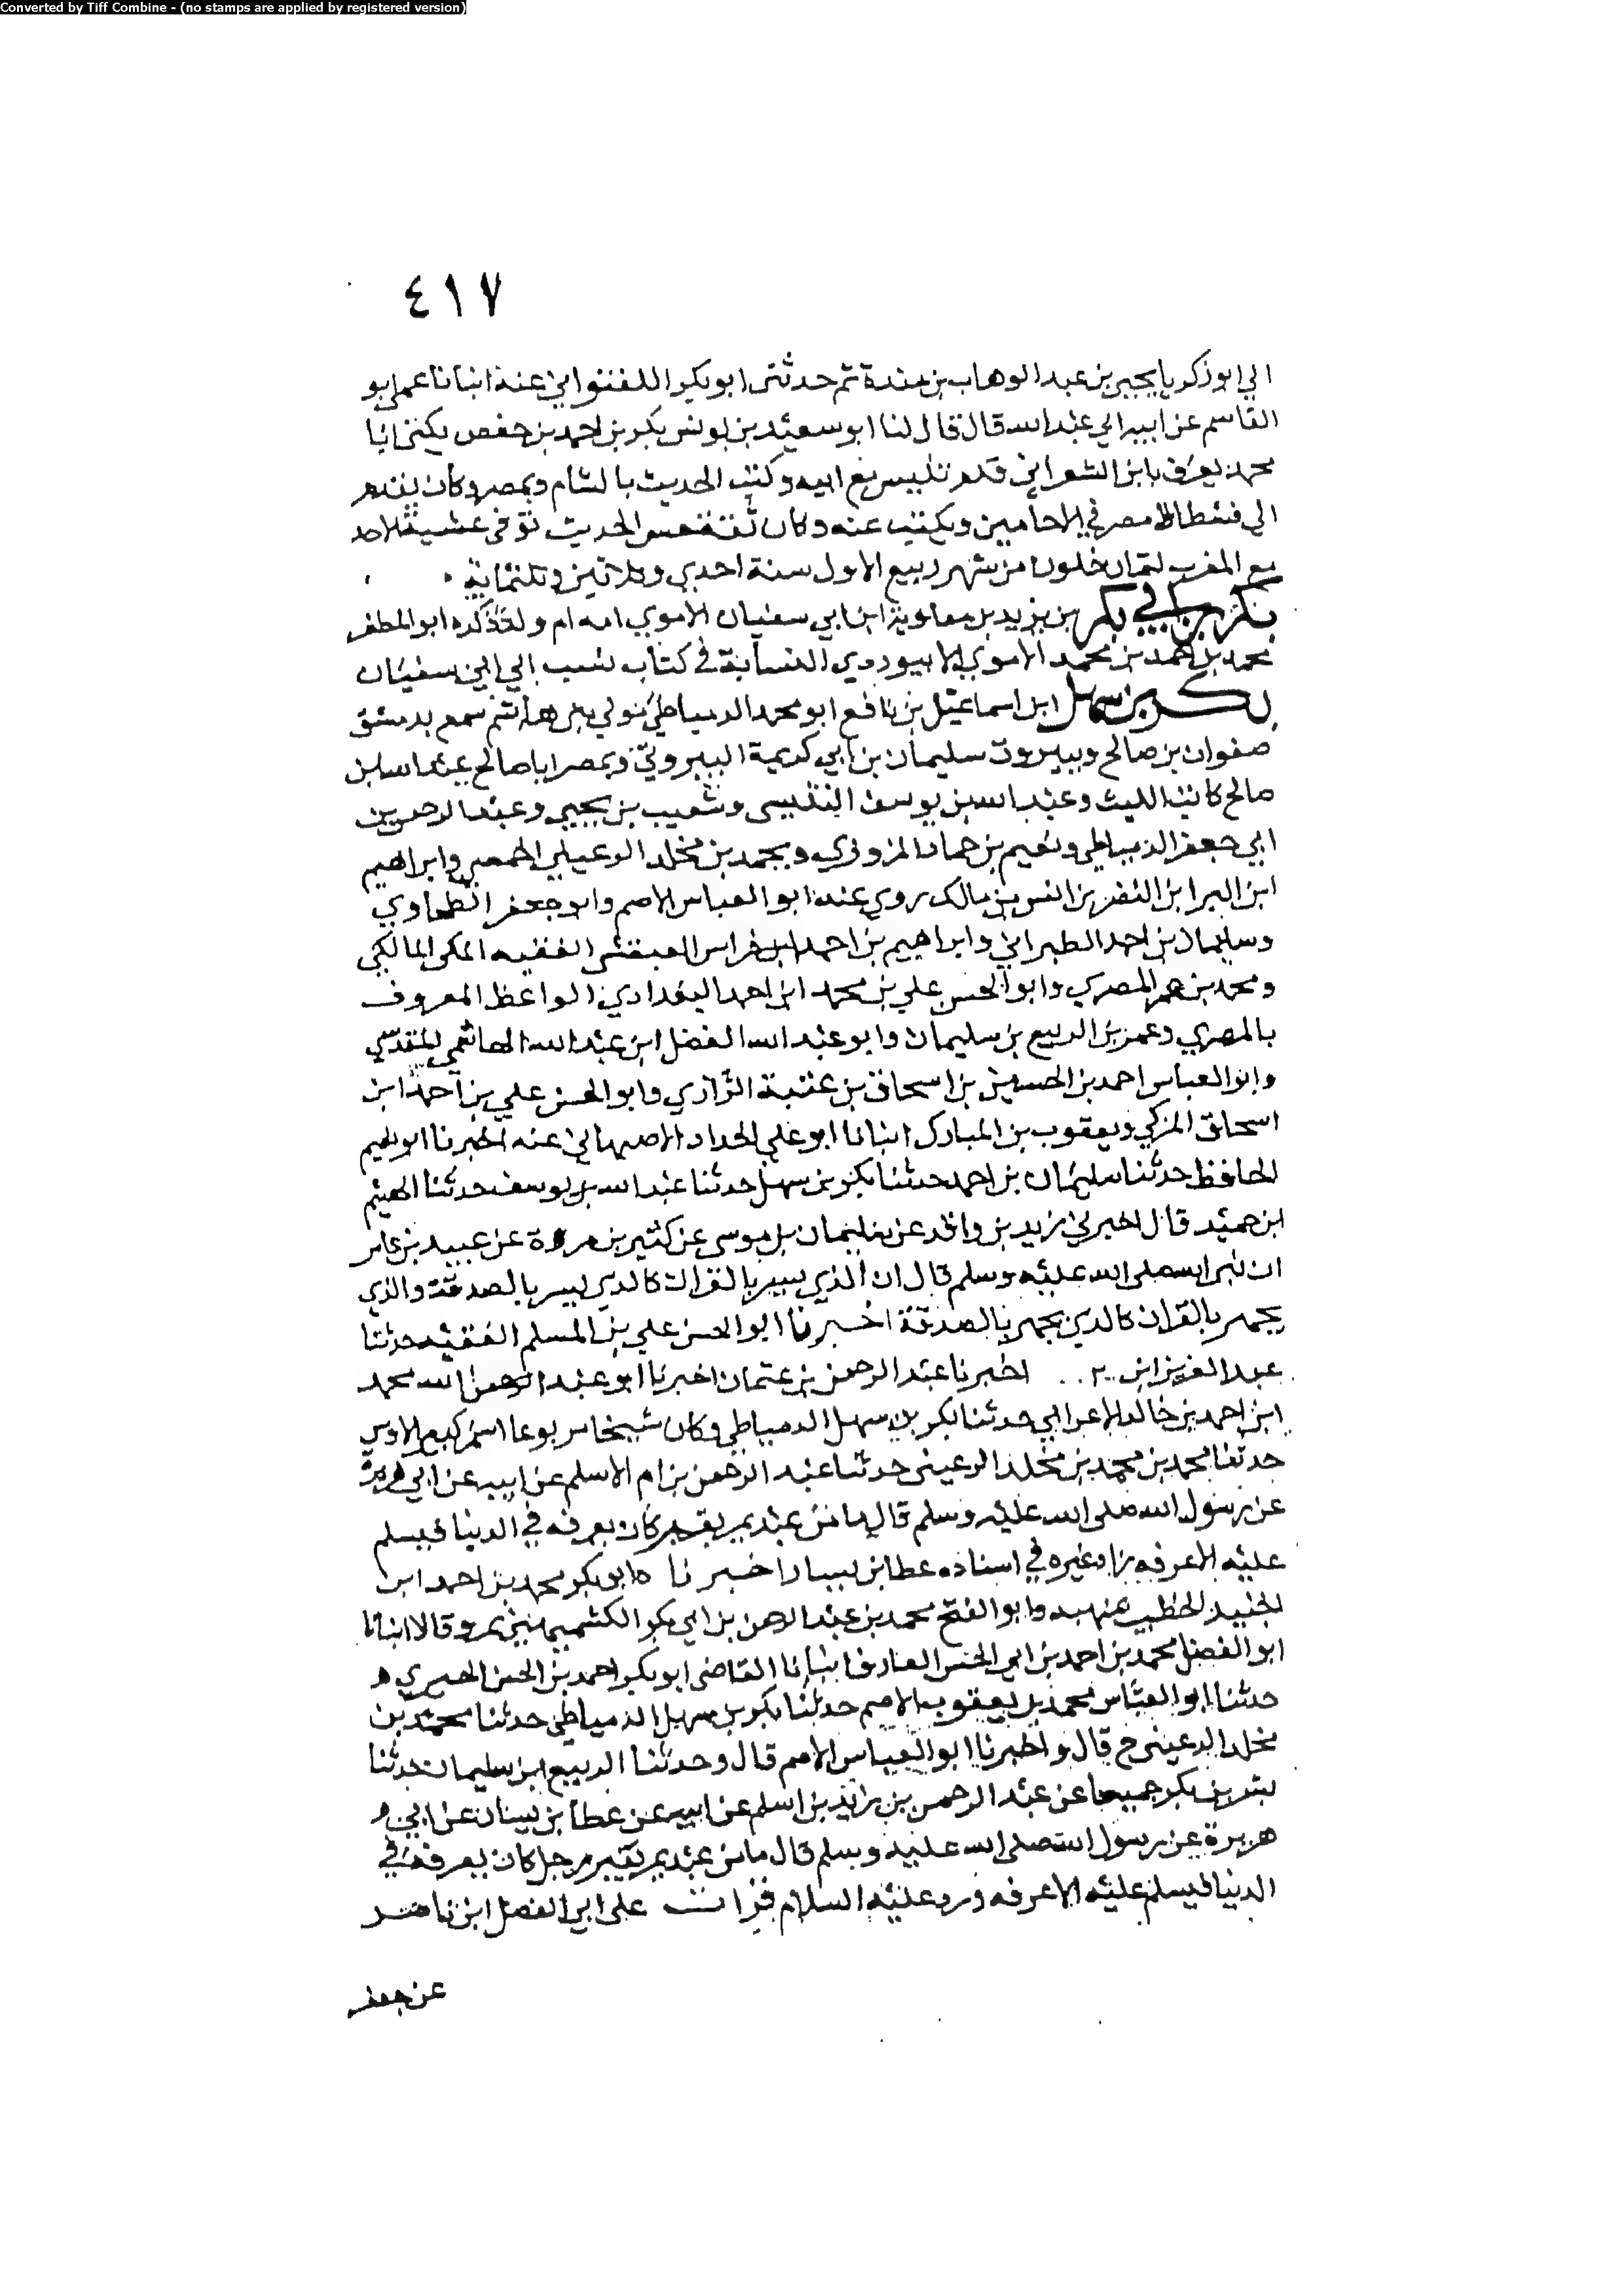 Converted by Tiff Combine - (no stamps are applied by registered version)
٤١٧
الي ابو زكريا يحيي بن عبد الوهاب بن مندة ثم حدثني ابو بكر اللفتواني عنه انبانا عمي ابو
القاسم عن ابيه ابي عبد الله قال قال لنا ابو سعيد بن يونس بكر بن احمد بن حفص يكني ابا
محمد يعرف بابن الشعراني قدم تنيس مع ابيه وكتب الحديث بالشام وبمصر وكان يقدم
الي فسطاط مصر في الاحايين ويكتب عنه وكان ثقة حسن الحديث توفي عشية الاحد
مع المغرب لثمان خلون من شهر ربيع الاول سنة احدي وثلاثين وثلثمائة
بكر بن ابي بكر بن يزيد بن معاوية ابن ابي سفيان الاموي امه ام ولد ذكره ابو المظفر
محمد بن احمد بن محمد الاموي الابيوردي النسابة في كتاب نسب ال ابي سفيان
بكر بن سهل ابن اسماعيل بن نافع ابو محمد الدمياطي مولي بني هاشم سمع بدمشق
صفوان بن صالح وببيروت سليمان بن ابي كريمة البيروتي وبمصر ابا صالح عبد الله بن
صالح كاتب الليث وعبد الله بن يوسف التنيسي وشعيب بن يحيي وعبد الرحمن بن
ابي جعفر الدمياطي ونعيم بن حماد المروزي ومحمد بن مخلد الرعيني الحمصي وابراهيم
ابن البرا ابن النضر بن انس بن مالك روي عنه ابو العباس الاصم وابو جعفر الطحاوي
وسليمان بن احمد الطبراني وابراهيم بن احمد ابن فراس العبقسي الفقيه المكي المالكي
ومحمد بن المصري وابو الحسن علي بن محمد ابن احمد البغدادي الواعظ المعروف
بالمصري وعمر بن الربيع بن سليمان وابو عبد الله الفضل ابن عبد الله الهاشمي المقدسي
وابو العباس احمد بن الحسين بن اسحاق بن عتبة الرازي وابو الحسن علي بن احمد ابن
اسحاق المزكي ويعقوب بن المبارك انبانا ابو علي الحداد الاصبهاني عنه اخبرنا ابو نعيم
الحافظ حدثنا سليمان بن احمد حدثنا بكر بن سهل حدثنا عبد الله بن يوسف حدثنا الهيثم
ابن حميد قال اخبرني زيد بن واقد عن سليمان بن موسي عن كثير بن مرة عن عبيد بن عامر
ان نبي الله صلى الله عليه وسلم قال ان الذي يسر بالقران كالذي يسر بالصدقة والذي
يجهر بالقران كالذي يجهر بالصدقة اخبرنا ابو الحسن علي بن المسلم الفقيه حدثنا
عبد العزيز ابن .. اخبرنا عبد الرحمن بن عثمان اخبرنا ابو عبد الرحمن محمد
ابن احمد بن خالد الاعرابي حدثنا بكر بن سهل الدمياطي وكان شيخا مربوعا
حدثنا محمد بن محمد بن مخلد الرعيني حدثنا عبد الرحمن بن ام الاسلم عن ابيه عن ابي هريرة
عن رسول الله صلى الله عليه وسلم قال ما من عبد يمر بقبر كان يعرفه في الدنيا فيسلم
عليه الا عرفه زاد غيره في اسناده عطا بن يسار اخبرنا ه ابو بكر محمد بن احمد ابن
الجنيد الخطيب وابو الفتح محمد بن عبد الرحمن بن ابي بكر الكشميهني بمرو قالا انبانا
ابو الفضل محمد بن احمد بن ابي الحسن العارف انبانا القاضي ابو بكر احمد بن الحسن الحيري ه
حدثنا ابو العباس محمد بن يعقوب الاصم حدثنا بكر بن سهل الدمياطي حدثنا محمد بن
مخلد الرعيني ح قال واخبرنا ابو العباس الاصم قال وحدثنا الربيع ابن سليمان حدثنا
بشر بن بكر جميعا عن عبد الرحمن بن زايد بن اسلم عن ابيه عن عطا بن يسار عن ابي ه
هريرة عن رسول الله صلى الله عليه وسلم قال ما من عبد يمر بقبر رجل كان يعرفه في
الدنيا فيسلم عليه الا عرفه ورد عليه السلام قرات علي ابي الفضل ابن ناصر
عن جعفر